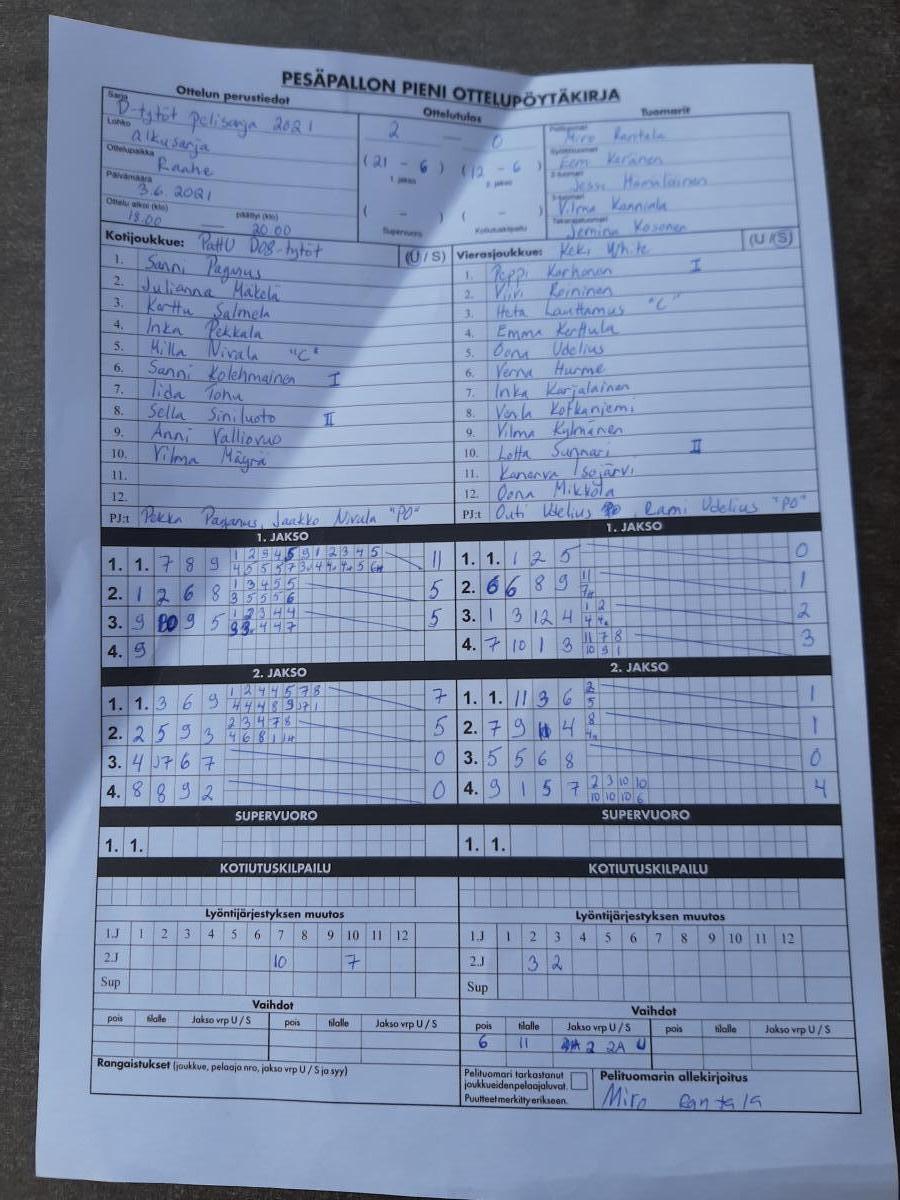 PESÄPALLON PIENI OTTELUPÖYTÄKIRJA
Ottelun perustiedot
Ottelutulos
Tuomarit
Sarja D-tytöt pelisarja 2021
Lohko alkusarja
Ottelupaikka Raahe
Päivämäärä 3.6.2021
Ottelu alkoi (klo) 18.00 — päättyi (klo) 20.00
2 — 0
(21 - 6) 1. jakso (12 - 6) 2. jakso
( - ) Supervuoro ( - ) Kotiutuskilpailu
Pelituomari Miro Rantala
Syöttötuomari Eemi Keränen
2-tuomari Jessi Hämäläinen
3-tuomari Vilma Kanniala
Takarajatuomari Jemina Kosonen
Kotijoukkue: PattU D08-tytöt (U / S)
1. Sanni Paganus
2. Julianna Mäkelä
3. Kerttu Salmela
4. Inka Pekkala
5. Milla Nivala "C"
6. Sanni Kolehmainen I
7. Iida Tohu
8. Sella Siniluoto II
9. Anni Valliovuo
10. Vilma Mäyrä
11.
12.
PJ:t Pekka Paganus, Jaakko Nivala "PO"
Vierasjoukkue: KeKi White (U / S)
1. Peppi Korhonen I
2. Viivi Roininen
3. Heta Lauttamus "C"
4. Emma Kerttula
5. Oona Udelius
6. Verna Hurme
7. Inka Karjalainen
8. Venla Kotkaniemi
9. Vilma Kylmänen
10. Lotta Sunnari II
11. Kanerva Isojärvi
12. Oona Mikkola
PJ:t Outi Udelius, Rami Udelius "PO"
1. JAKSO
1. 1. 7 8 9 1 2 3 4 5 9 1 2 3 4 5 11
2. 1 2 6 8 1 3 4 5 5 5
3 5 5 5 6
3. 9 10 9 5 1 2 3 4 4 5
4. 9
1. JAKSO
1. 1. 1 2 5 0
2. 6 6 8 9 11 1
3. 1 3 12 4 1 2 2
4. 7 10 1 3 11 7 8 3
10 9 1
2. JAKSO
1. 1. 3 6 9 1 2 4 4 5 7 8 7
2. 2 5 9 3 2 3 4 7 8 5
3. 4 7 6 7 0
4. 8 8 9 2 0
2. JAKSO
1. 1. 11 3 6 2 1
5
2. 7 9 4 8 1
3. 5 5 6 8 0
4. 9 1 5 7 2 3 10 10 4
10 10 10 6
SUPERVUORO
1. 1.
SUPERVUORO
1. 1.
KOTIUTUSKILPAILU
KOTIUTUSKILPAILU
Lyöntijärjestyksen muutos
1.J 1 2 3 4 5 6 7 8 9 10 11 12
2.J 10 7
Sup
Lyöntijärjestyksen muutos
1.J 1 2 3 4 5 6 7 8 9 10 11 12
2.J 3 2
Sup
Vaihdot
pois tilalle Jakso vrp U / S pois tilalle Jakso vrp U / S
Vaihdot
pois tilalle Jakso vrp U / S pois tilalle Jakso vrp U / S
6 11 2 2A U
Rangaistukset (joukkue, pelaaja nro, jakso vrp U / S ja syy)
Pelituomari tarkastanut
joukkueiden pelaajaluvat.
Puutteet merkitty erikseen.
Pelituomarin allekirjoitus
Miro Rantala